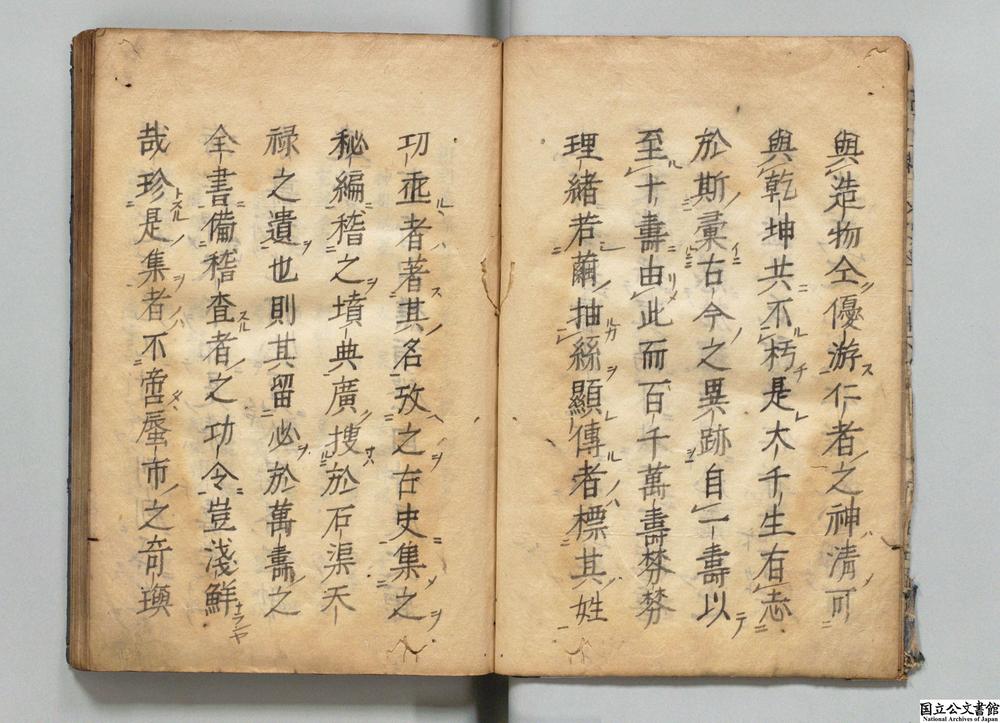 與造物仝優游仁者之神清可
與乾坤共不朽是大千生有志
於斯彙古今之異跡自一壽以
至十壽由此而百千萬壽棼棼
理緒若繭抽絲顯傳者標其姓
功乖者著其名攷之古史集之
秘編稽之墳典廣搜於石渠天
祿之遺也則其留必於萬壽之
全書備稽查者之功令豈淺鮮
哉珍是集者不啻蜃市之奇璵
国立公文書館
National Archives of Japan